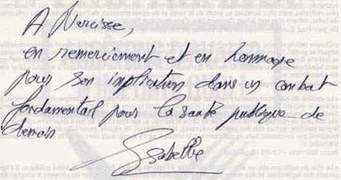 A Narcisse,
en remerciement et en hommage
pour son implication dans un combat
fondamental pour la santé publique de
demain
Isabelle